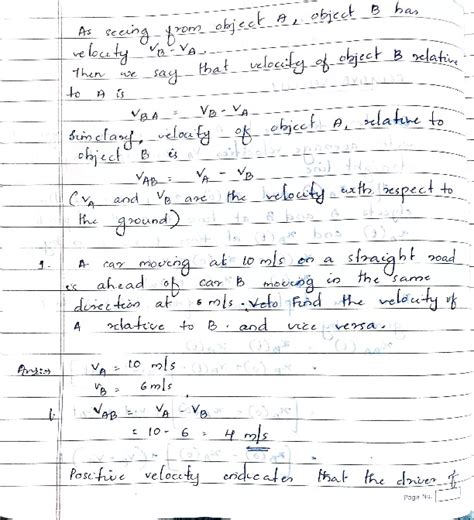 As seeing from object A, object B has
velocity VB - VA.
Then we say that velocity of object B relative
to A is
VBA = VB - VA
Simclary, velocity of object A, relative to
object B is
VAB = VA - VB
(VA and VB are the velocity with respect to
the ground)
1. A car moving at 10 m/s on a straight road
is ahead of car B moving in the same
direction at 6 m/s. Find the velocity of
A relative to B. and vice versa.
Ans:- VA = 10 m/s
VB = 6 m/s
VAB = VA - VB
= 10 - 6 = 4 m/s
Positive velocity indicates that the driver of
Page No.